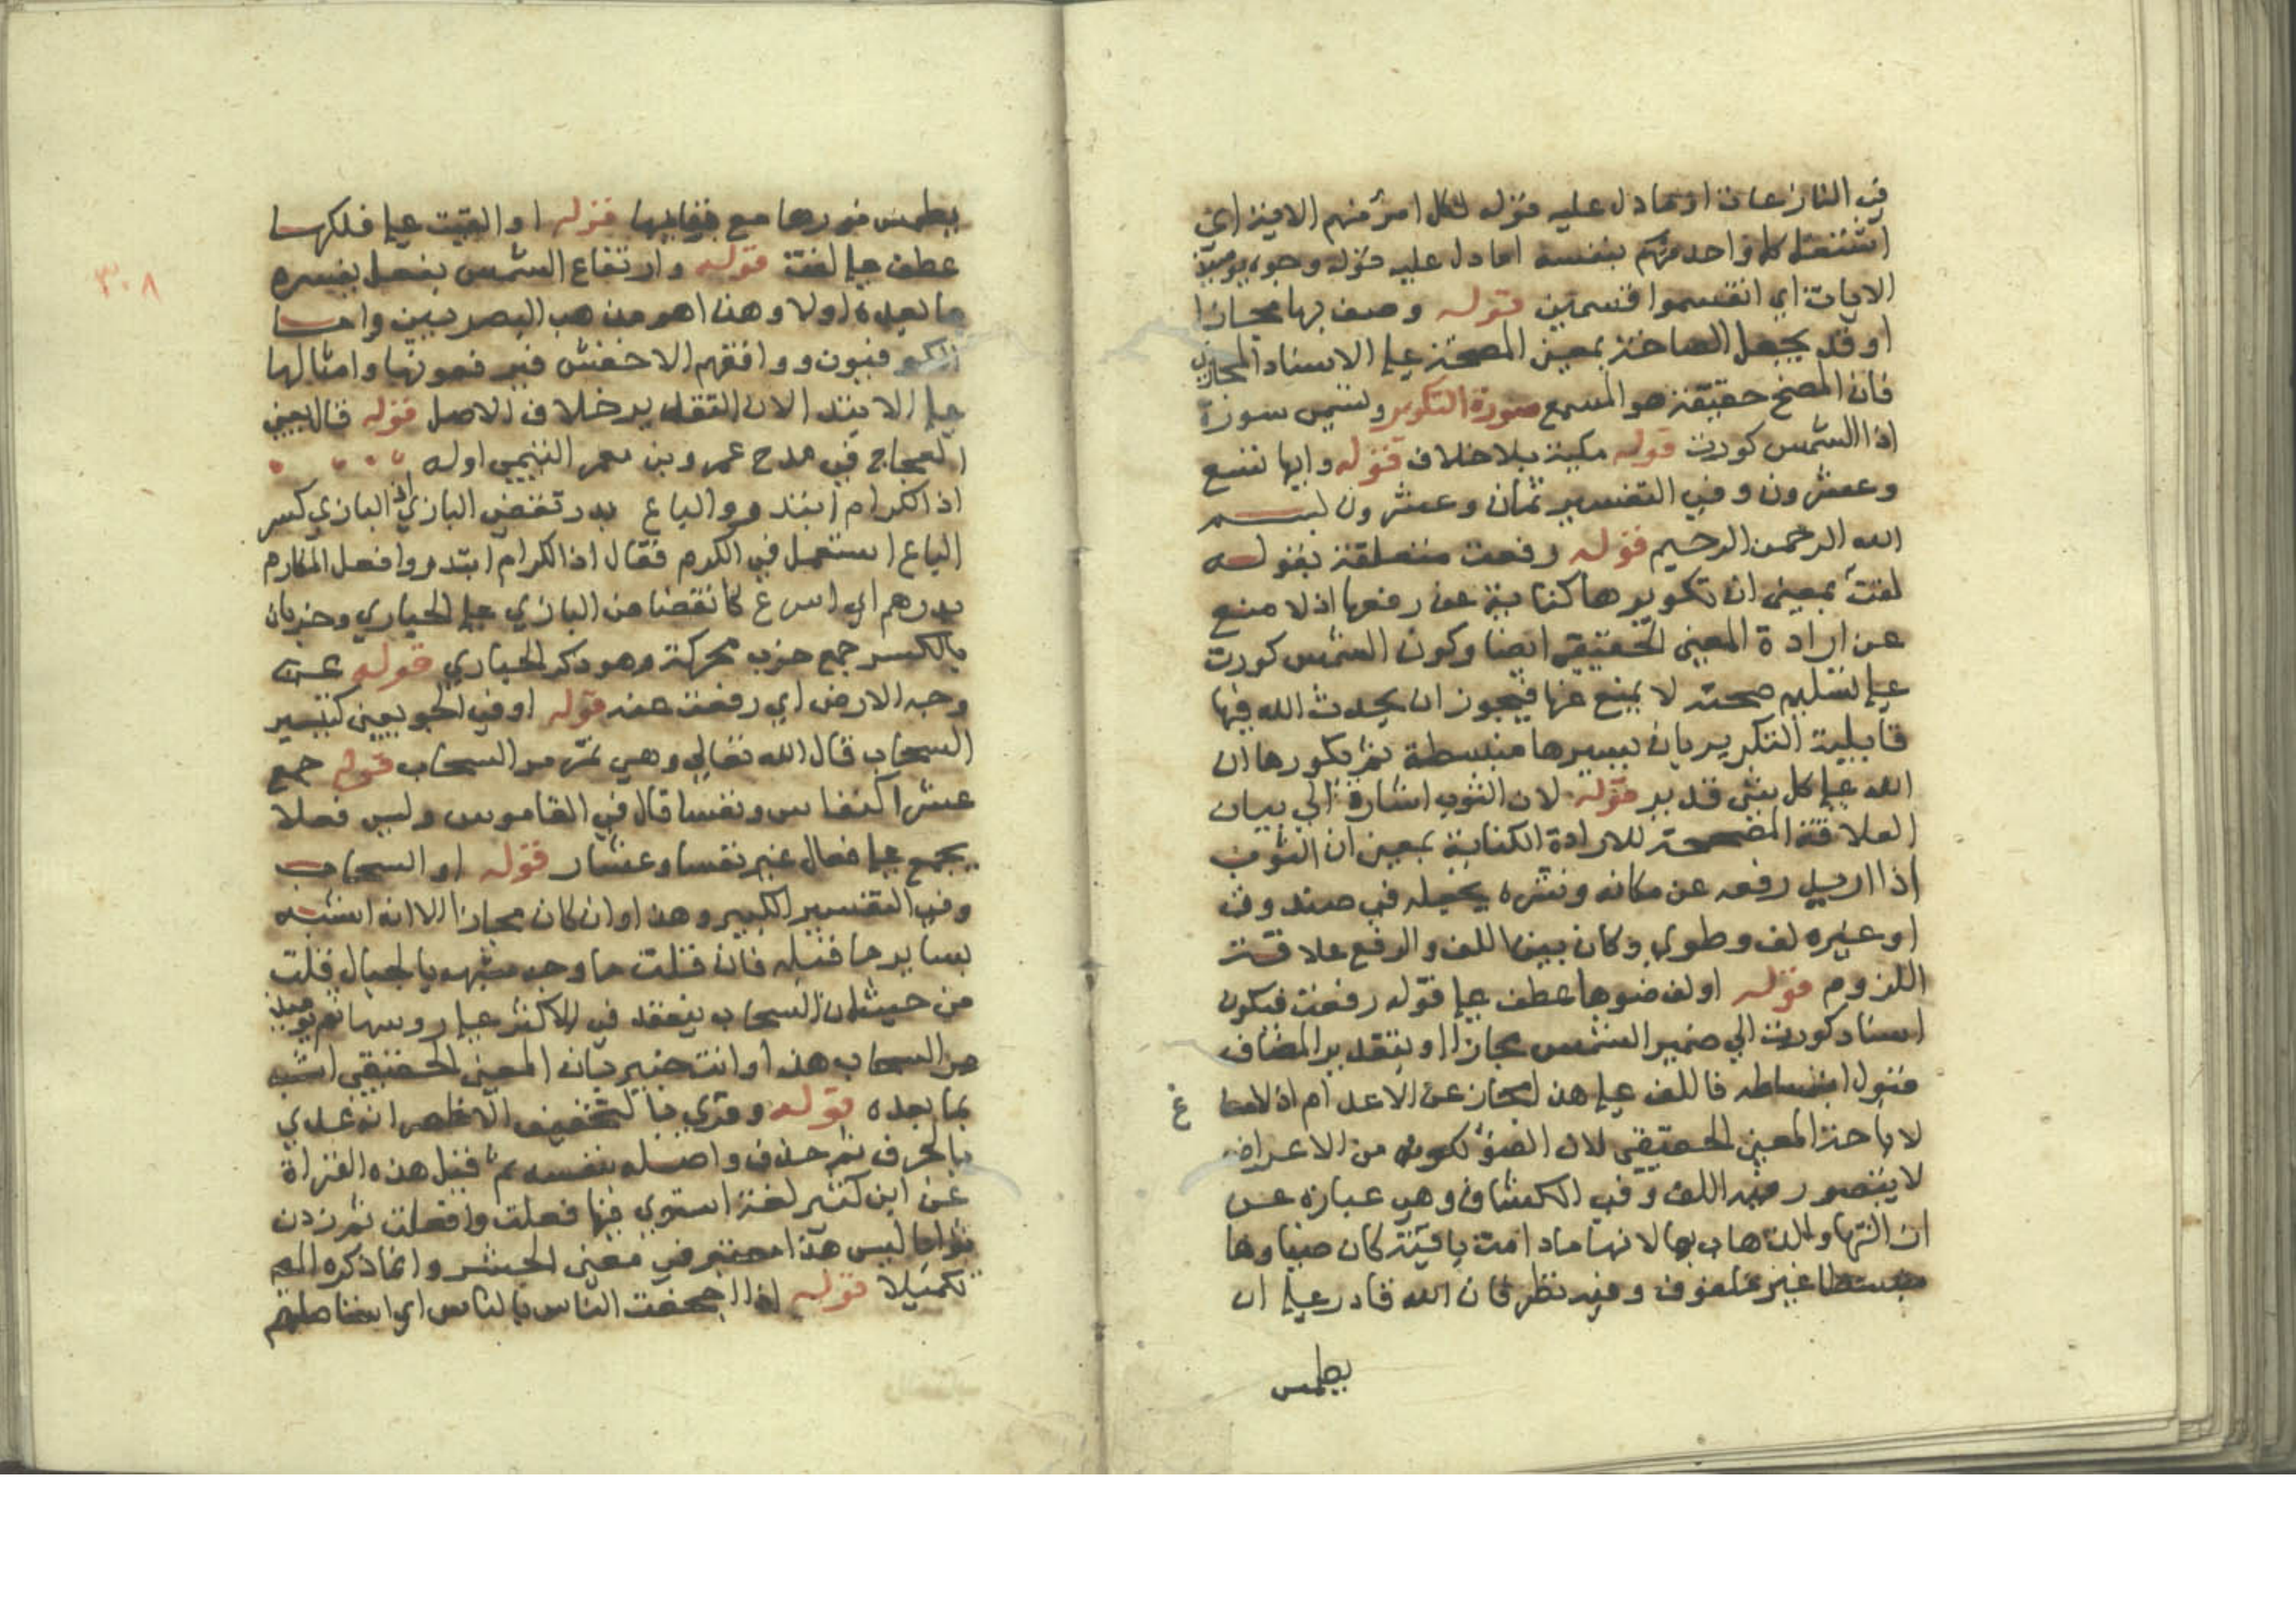 في النازعات او ما دل عليه قوله لكل امرئ منهم الاية اي
اشتغل كل واحد منهم بنفسه اما دل عليه قوله وجوه يومئذ
الايات اي انقسموا قسمين قوله وصف بها مجازا
او قد يجعل الصاخة بمعنى المصخة على الاسناد المجازي
فان المصخ حقيقة هو المسمع سورة التكوير وتسمى سورة
اذا الشمس كورت قوله مكية بلا خلاف قوله وايها تسع
وعشرون وفي التفسير ثمان وعشرون بسم
الله الرحمن الرحيم قوله رفعت متعلقة بقوله
لفت بمعنى ان تكويرها كناية عن رفعها اذ لا منع
عن ارادة المعنى الحقيقي ايضا وكون الشمس كورت
على تسليم صحته لا يمنع عنها فيجوز ان يحدث الله فيها
قابلية التكوير بان يسيرها منبسطة ثم يكورها ان
الله على كل شئ قدير قوله لان الثوب اشارة الي بيان
العلاقة المصححة للارادة الكناية بمعنى ان الثوب
اذا اريد رفعه عن مكانه ونشره يجعله في صندوق
او غيره لف وطوي وكان بين اللف والرفع علاقة
اللزوم قوله اولف ضوها عطف على قوله رفعت فيكون
اسناد كورت الي ضمير الشمس مجازا او بتقدير المضاف
فزول انبساطه فاللف على هذا مجاز عن الاعدام اذ لا مسا
غ
لا باحذ المعنى الحقيقي لان الضؤ لكونه من الاعراض
لا يتصور فيه اللف وفي الكشاف وهي عبارة عن
ازالتها والذهاب بها لانها مادامت باقية كان ضياوها
منبسطا غير ملفوف وفيه نظر فان الله قادر على ان
يطمس
٣٠٨
يطمس نورها مع بقايها قوله او القيت على فلكها
عطف على لفت قوله وارتفاع الشمس بفعل يفسره
ما بعده اولا وهذا هو مذهب البصريين واما
الكوفيون ووافقهم الاخفش فيرفعونها وامثالها
على الابتدا لان التقدير خلاف الاصل قوله قال يعني
العجاج في مدح عمرو بن معمر التيمي اوله
اذا الكرام ابتدروا الباع بدر تقضي البازي اذا البازي كسر
الباع استعمل في الكرم فقال اذا الكرام ابتدروا فعل المكارم
بدرهم اي اسرع كانقضاض البازي على الحباري وخربان
بالكسر جمع خرب محركة وهو ذكر الحباري قوله عن
وجه الارض اي رفعت عنه قوله او في الجو يعني كتسيير
السحاب قال الله تعالي وهي تمر مر السحاب قوله جمع
عشرا كنفاس ونفسا قال في القاموس وليس فعلا
يجمع على فعال غير نفسا وعشار قوله او السحاب
وفي التفسير الكبير وهذا وان كان مجازا الا انه اشبه
بساير ما قبله فان قلت ما وجه شبهه بالجبال قلت
من حيث ان السحاب ينعقد في الاكثر على روسها ثم يومئذ
من السحاب هذا وانت خبير بان المعنى الحقيقي اشبه
بما بعده قوله وقري بالتخفيف الاظهر انه عدي
بالحرف ثم حذف واصله بنفسه ثم قيل هذه القراة
عن ابن كثير لغة استوي فيها فعلت وافعلت ثم زدن
ثواما ليس هذا معتبر في معنى الحشر وانما ذكره المص
تكميلا قوله اذا اجحفت الناس بالناس اي استاصلتهم